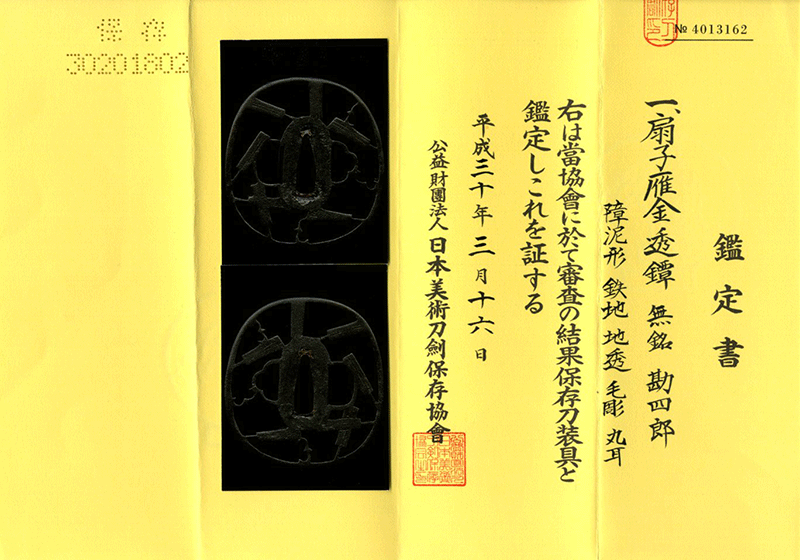 № 4013162
鑑定書
一、扇子雁金透鐔 無銘 勘四郎
障泥形 鉄地 地透 毛彫 丸耳
右は當協會に於て審査の結果保存刀装具と
鑑定しこれを証する
平成三十年三月十六日
公益財團法人 日本美術刀劍保存協會
保存
30201802